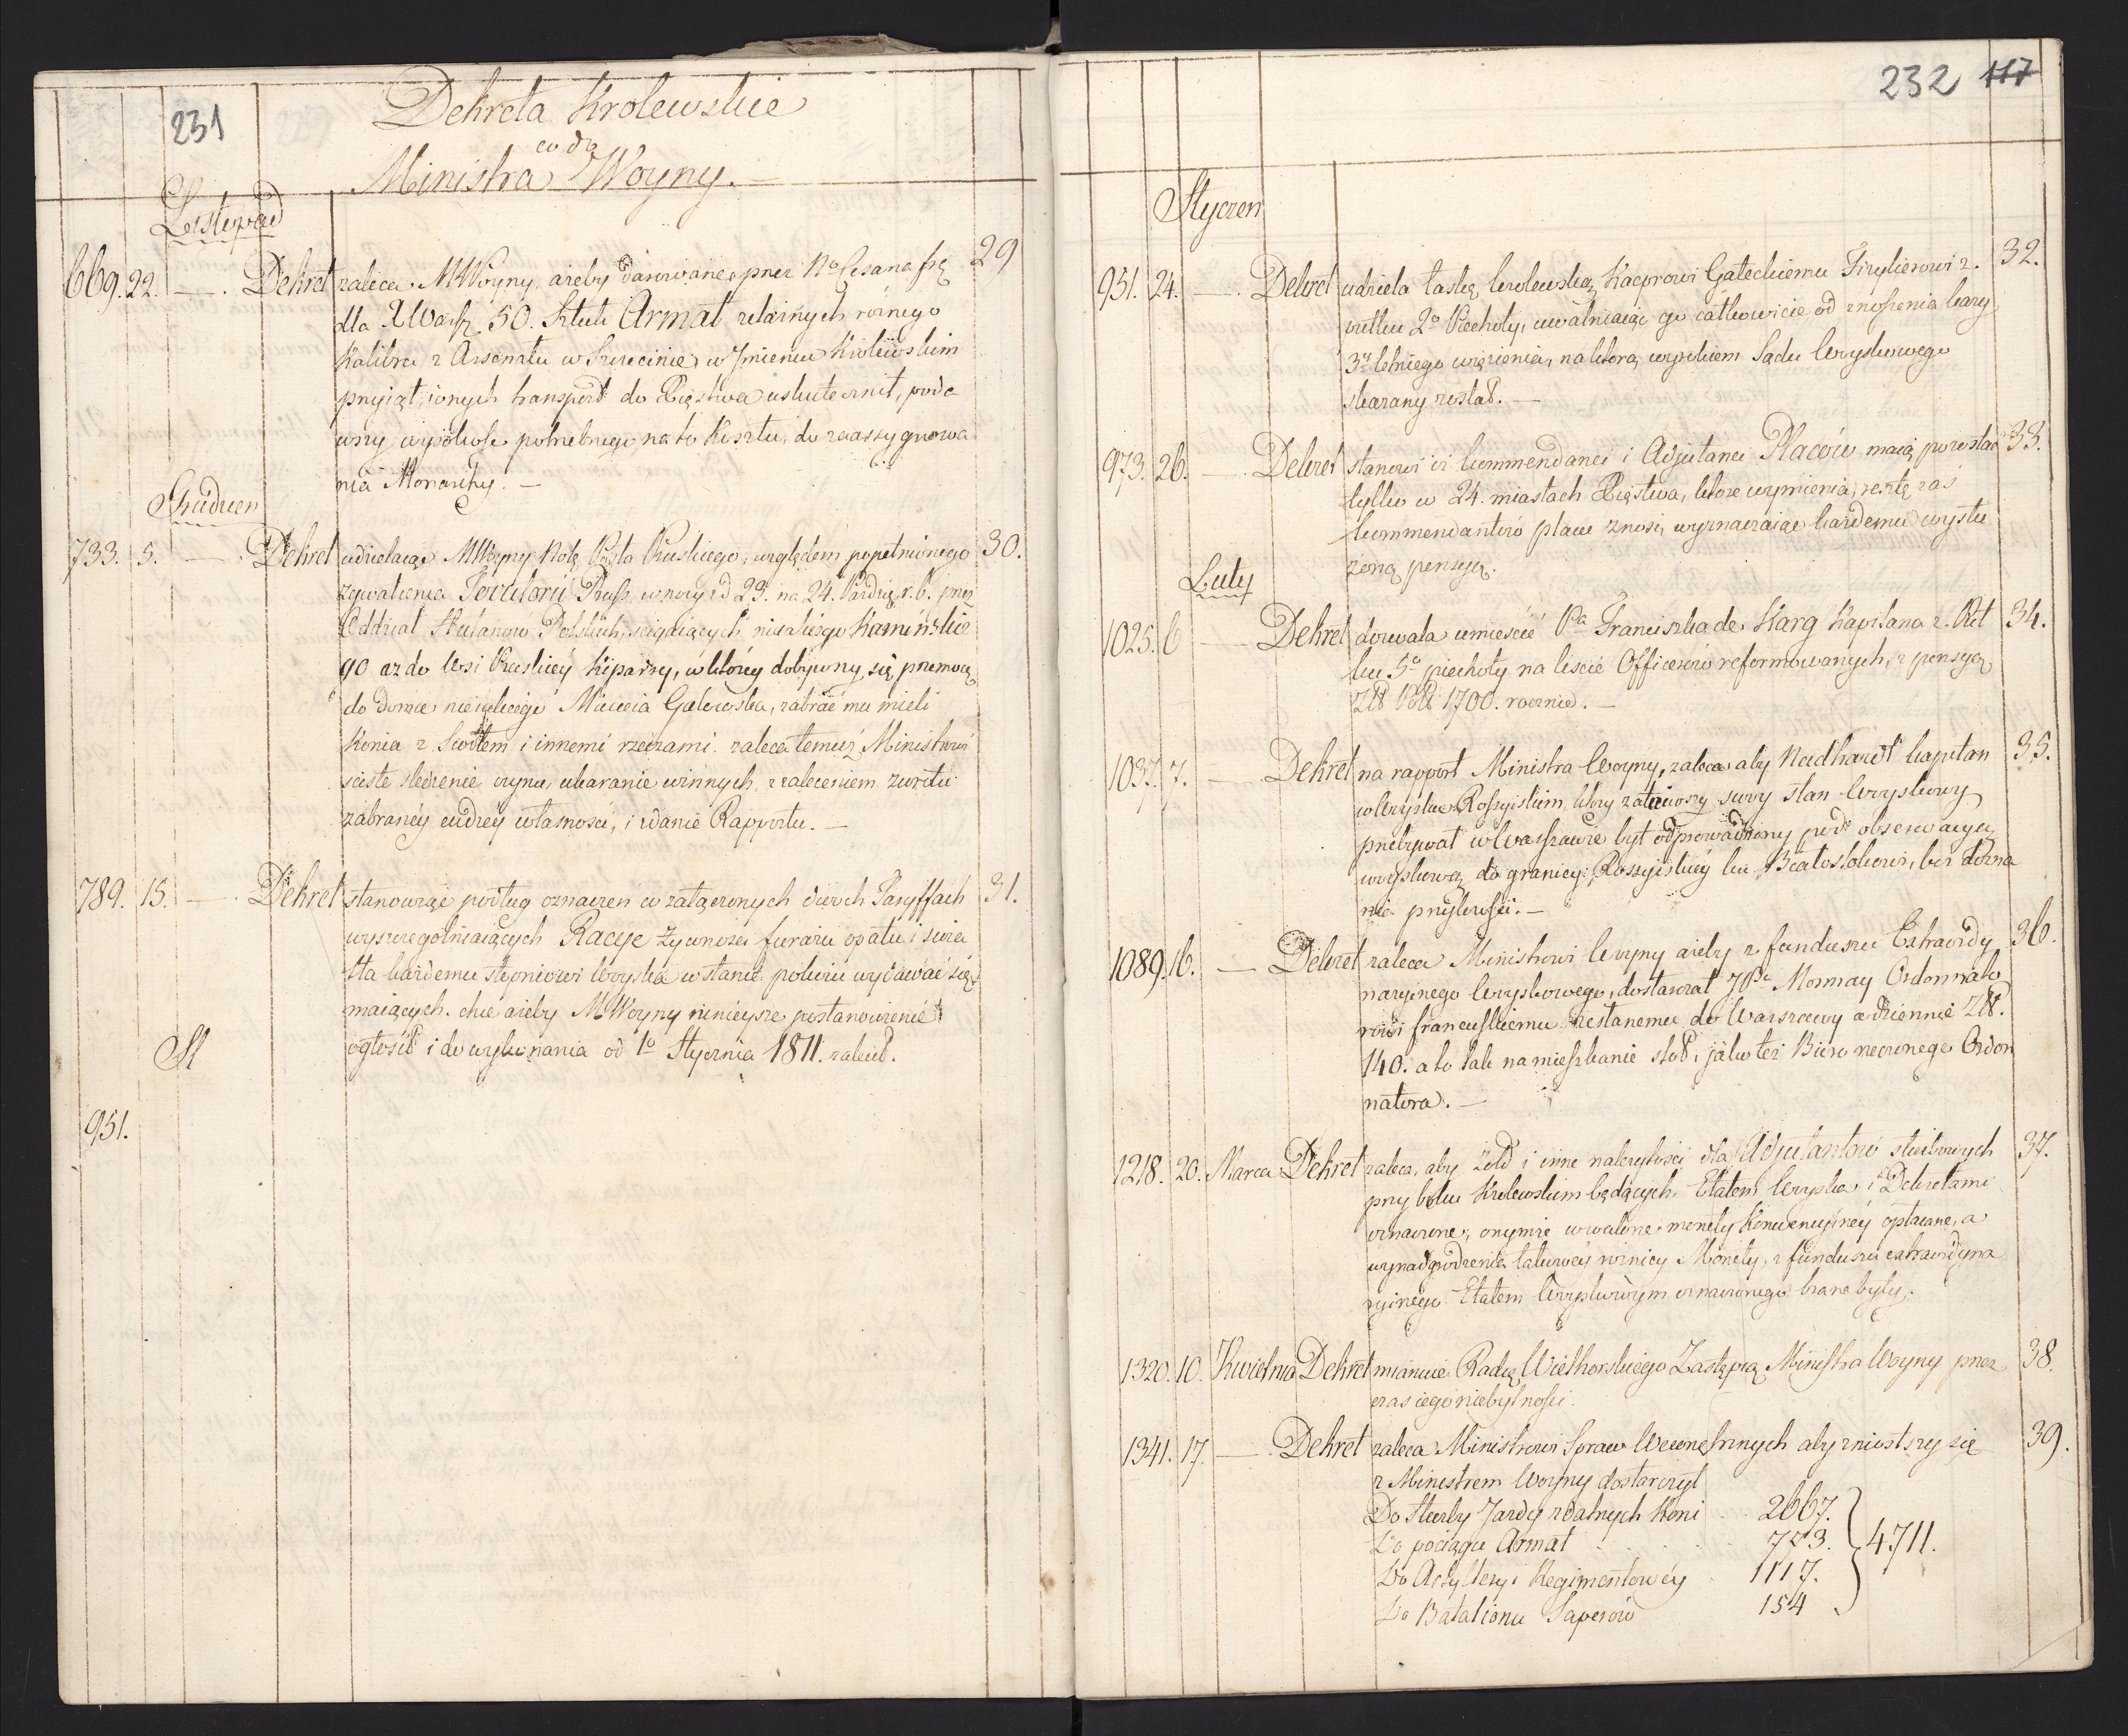 231
Dekreta Krolewskie
co do
Ministra Woyny.
Listopad
669. 22. — Dekret zaleca M Woyny, ażeby darowane przez Nº Cesarza frę 29
dla X Warsz. 50. Sztuk Armat żelaznych rożnego
Kalibru z Arsenału w Szczecinie w Jmieniu Krolewskim
przyiął, ionych transport do Xięstwa uskutecznił, poda
wszy wysokość potrzebnego na to Kosztu, do zaassygnowa
nia Monarchy. —
Grudzien
733. 5. — Dekret udzielaiąc M Woyny Notę Posła Pruskiego, względem popełnionego 30.
zgwałcenia Territorii Pruss. w nocy z d 23. na 24. Paźdz. r. b. przez
Oddział Hułanow Polskich, scigaiących nieiakiego Kamińskie
go aż do Wsi Pruskiéy Kiparzy, w ktorey dobywszy się przemocą
do domu nieiakiego Macieia Galewska, zabrać mu mieli
Konia z Siodłem i innemi rzeczami. zaleca temuż Ministrowi
scisłe sledzenie czynu, ukaranie winnych z zaleceniem zwrotu
zabranéy cudzéy własności, i zdanie Rapportu. —
789. 15. — Dekret stanowiąc podług oznaczen w załączonych dwoch Taryffach 31.
wyszczegolniaiących Racye żywności furażu opału i swia
tła każdemu stopniowi Woyska w stanie pokoiu wydawać się
maiących. chce ażeby M Woyny ninieysze postanowienie
ogłosił i do wykonania od 1º Stycznia 1811. zalecił.
St
951.
232 117
Styczen
951. 24. — Dekret udziela łaskę krolewską Kacprowi Gałeckiemu Fizylierowi z. 32.
pułku 2º Piechoty, uwalniaiąc go całkowicie od znoszenia kary
3letniego więzienia, na ktorą wyrokiem Sądu Woyskowego
skazany został. —
973. 26. — Dekret stanowi iż kommendanci i Adjutanci Placów maią pozostać 33.
tylko w 24. miastach Xięstwa, ktore wymienia, resztę zaś
kommendantów placu znosi, wyznaczaiąc każdemu wysłu
żoną pensyą.
Luty
1025. 6 — Dekret dozwala umieścić Pa Franciszka de Karg Kapitana z. Puł 34.
ku 5º piechoty na liscie Officerów reformowanych, z pensyą
Złł Pol: 1700. rocznie. —
1037. 7. — Dekret na rapport Ministra Woyny, zaleca aby Neidhardt kapitan 35.
w Woysku Rossyiskim, ktory zataiwszy swoy stan Woyskowy
przebywał w Warszawie był odprowadzony pod obserwacyą
woyskową do granicy Rossyiskiéy ku Białostokowi, bez dozna
nia przykrości. —
1089. 16. — Dekret zaleca Ministrowi Woyny ażeby z funduszu Extraordy 36.
naryinego Woyskowego, dostarczał JPu Mornay Ordonnato
rowi francuskiemu zesłanemu do Warszawy a dziennie Złł.
140. a to tak na mieszkanie stół, jako też Biuro rzeczonego Ordon
natora. —
1218. 20. Marca Dekret zaleca, aby żołd i inne należytości dla Adjutantów służbowych 37.
przy boku Krolewskim będących, Etatem Woyska i Dekretami
oznaczone, onymże w walorze monety Konwencyinéy opłacane, a
wynadgrodzenia takowéy roznicy Monety, z funduszu extraordyna
ryinego Etatem Woyskowym oznaczonego brane były.
1320. 10. Kwietnia Dekret mianuie Radcę Wielhorskiego Zastępcą Ministra Woyny przez 38.
czas iego niebytności.
1341. 17. — Dekret zaleca Ministrowi Spraw Wewnętrznych aby zniosłszy się 39.
z Ministrem Woyny dostarczył
Do Służby Jazdy zdatnych Koni . . 2667.
Do pociągu Armat . . . . . 773. } 4711.
Do Artylleryi Regimentowéy . 1117.
Do Batalionu Saperów 154